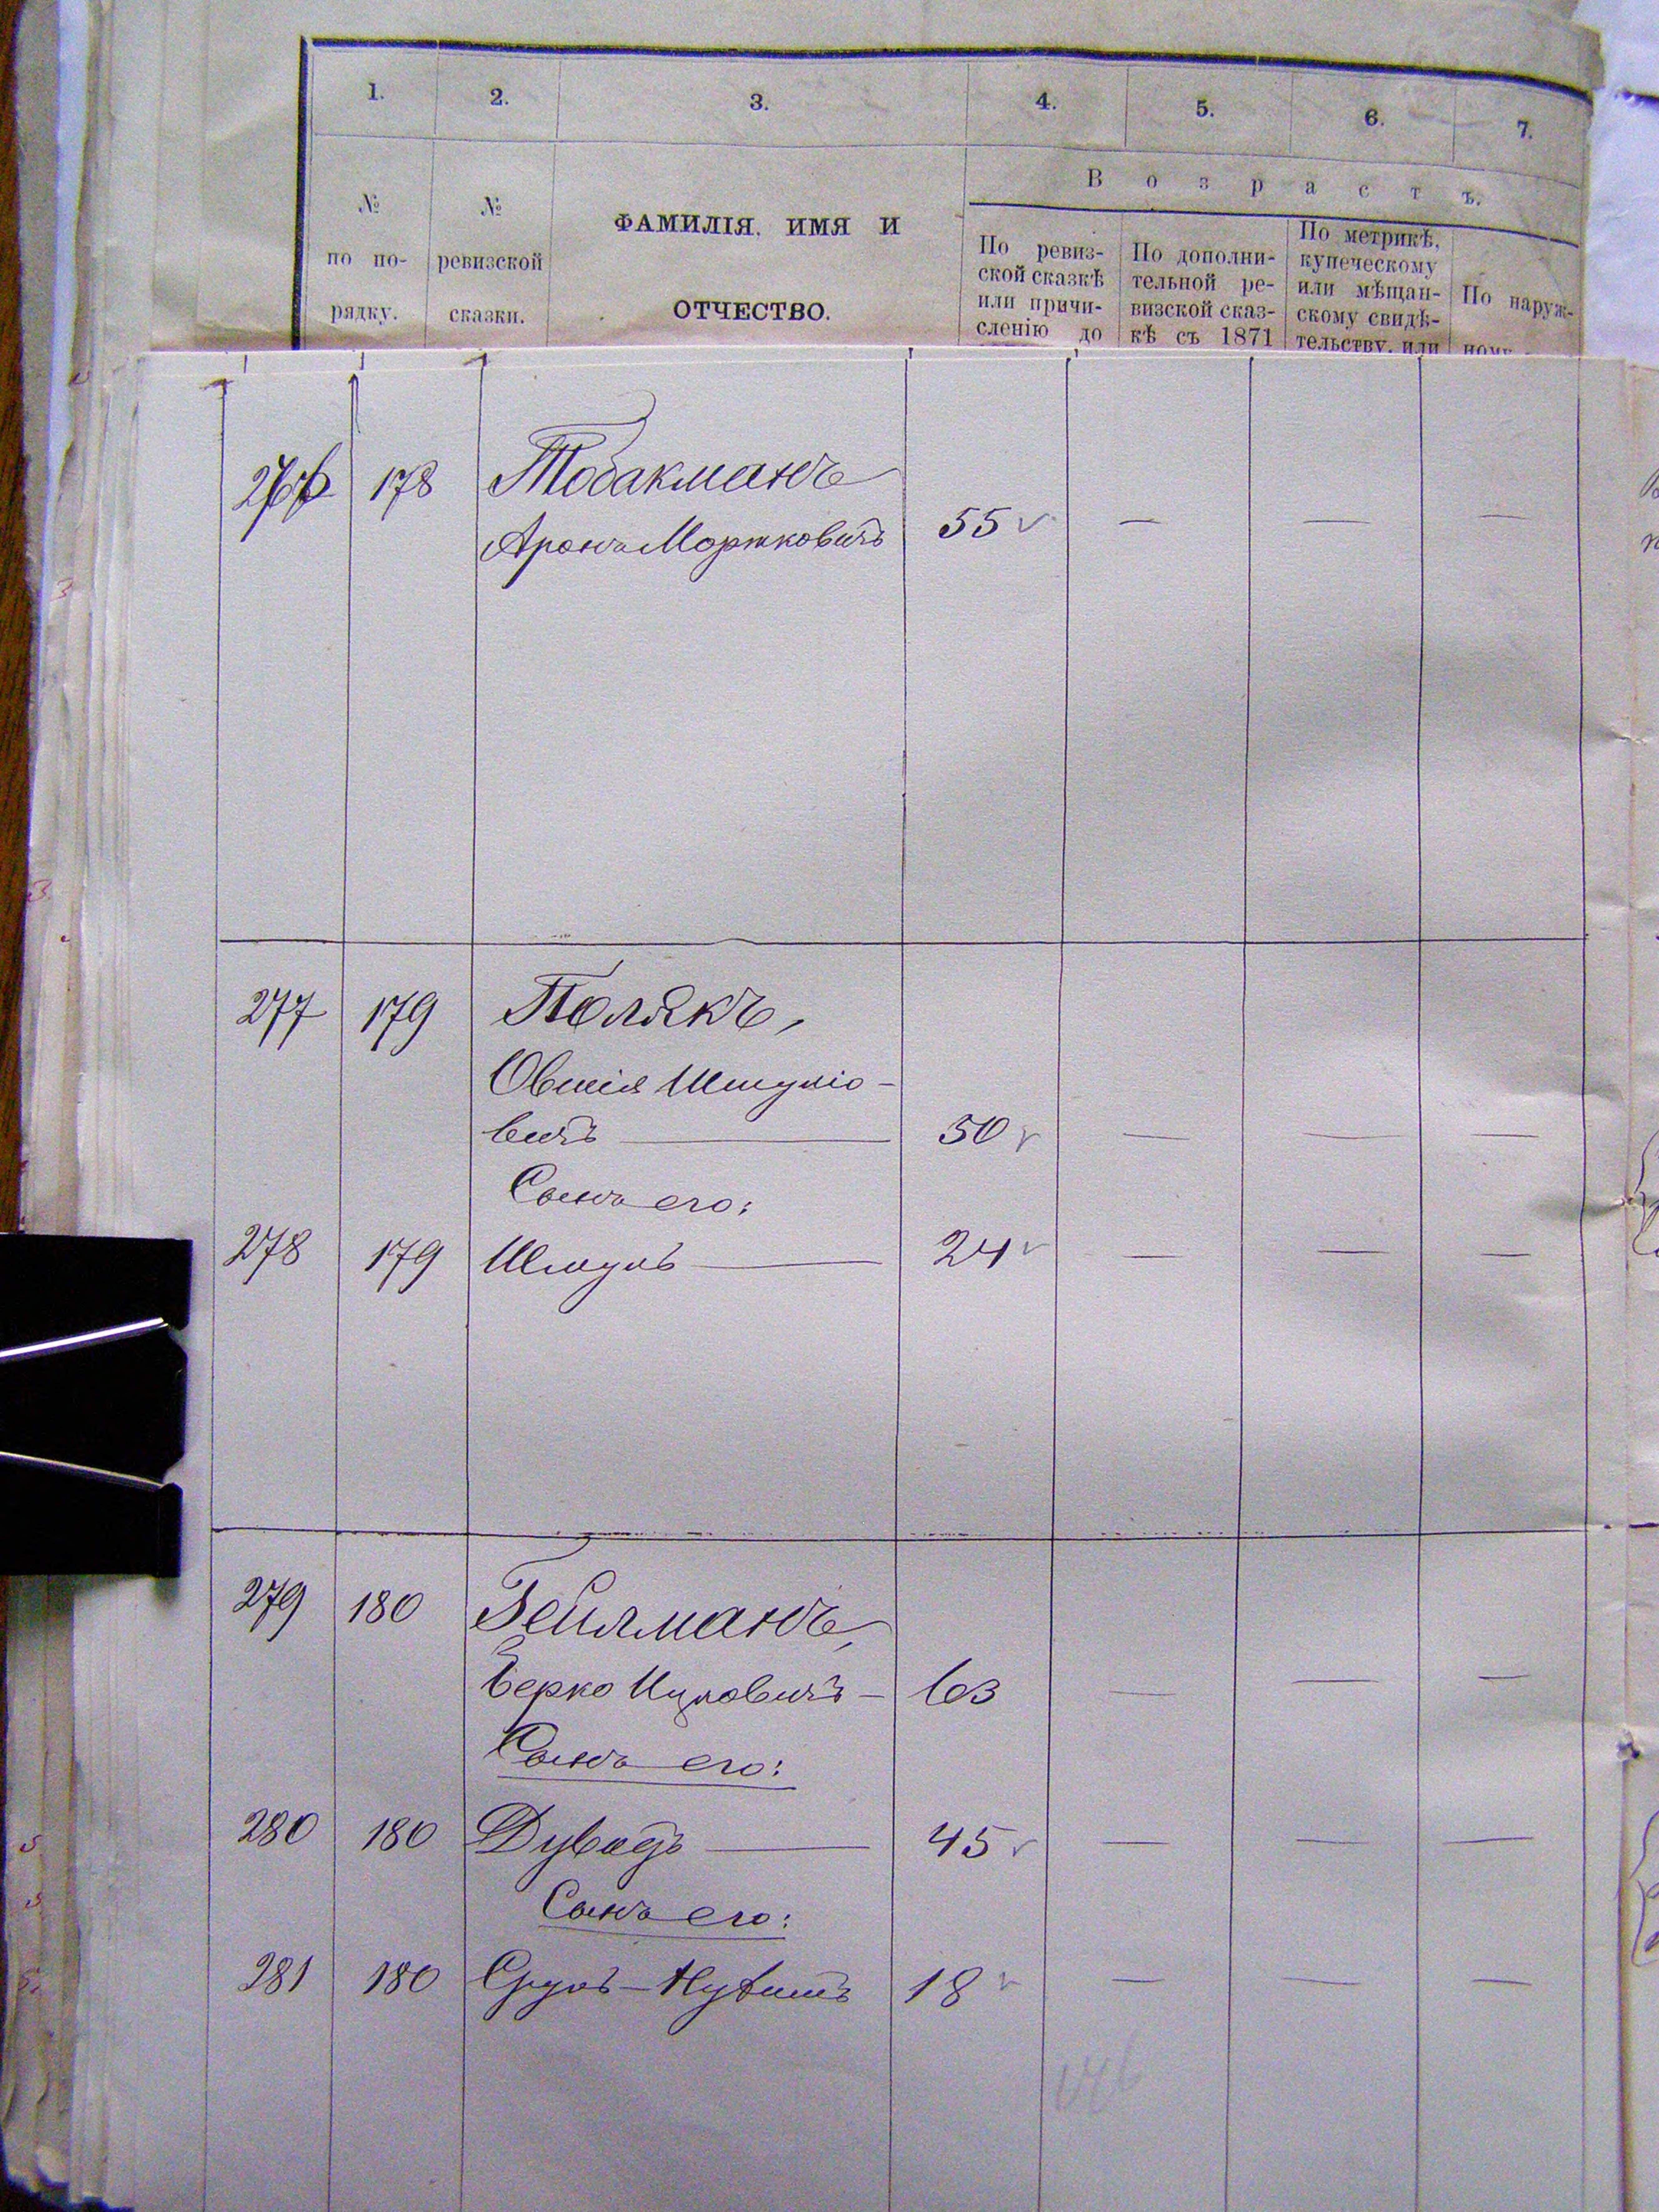 1. 2. 3. 4. 5. 6. 7.
№ по по- рядку.
№ ревизской сказки.
ФАМИЛІЯ, ИМЯ И
ОТЧЕСТВО.
Возрастъ.
По ревиз-
ской сказкѣ
или причи-
сленію до
По дополни-
тельной ре-
визской сказ-
кѣ съ 1871
По метрикѣ,
купеческому
или мѣщан-
скому свидѣ-
тельству, или
По наруж-
ному
276 178 Тобакманъ
Аронъ Моржковичъ 55 — — —
277 179 Полякъ,
Овшія Шмуліо-
вичъ 50 — — —
Сынъ его:
278 179 Шмуль 24 — — —
279 180 Гейлманъ,
Берко Ицковичъ — 63 — — —
Сынъ его:
280 180 Дувидъ 45 — — —
Сынъ его:
281 180 Сруль- 18 — — —